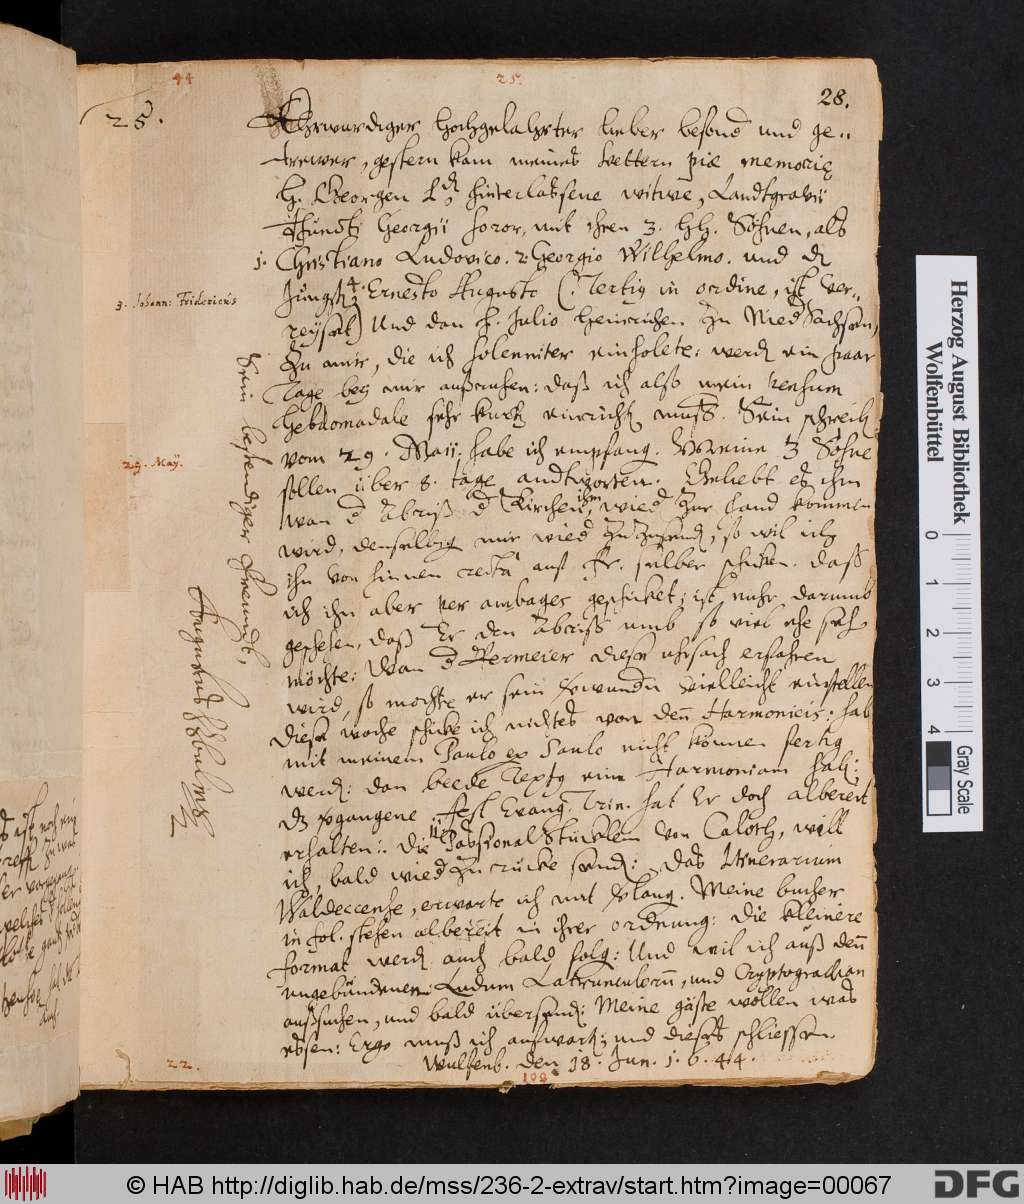 44
25.
28.
25.
Ehrwurdiger Hochgelahrter lieber besond und ge„
trewer, gestern kam meines Vettern piæ memoriæ
H. Georgen hinterlassene witwe, Landtgravii
Georgii soror, mit ihren 3. Söhnen, als
1. Christiano Ludovico. 2. Georgio Wilhelmo. und
3. Johann: Fridericus
Jüngst 4. Ernesto Augusto (: Tertius in ordine, ist Ver„
reyset) Und dan H. Julio Heinrichen zu Nied Sachsen,
zu mir, die ich solenniter einholete: werd ein paar
Tage bey mir außruhen: daß ich also mein pensum
Hebdomadale sehr kurtz einricht muß. Sein schreib
29. May.
vom 29. Maii, habe ich empfang. Meine 3 Söhne
sollen über 8. tage andtworten. Beliebt es ihm
wan d Abriß d Kirchen, ihm wied zur hand kommen
wird, denselbig mir wied zuzusend, so wil ich
ihn von hinnen recta auf Fr. selber schicken. Dass
ich ihn aber per ambages geschicket; ist nuhr darumb
geschehen, daß Er den Abriss umb so viel ehe seh
möchte: Wan d Vermeier diese uhrsach erfahren
wird, so mochte er sein verwundern vielleicht einstellen
diese woche schicke ich nichtes von den Harmonicis: hab
mit meinem Paulo ex Saulo nicht können fertig
werd: dan beede Texte eine Harmoniam hab:
dz vergangene fest Evang. Trin. hat Er doch albereit
erhalten: die 11 Passional Stücklein von Caloth, will
ich, bald wied zu rücke send: Das Itinerarium
Waldeccense, erwarte ich mit verlang. Meine bucher
in fol. stehen albereit in ihrer ordnung: die kleinere
format werd auch bald folg: Und wil ich auß den
ungebundenen Ludum Latrunculorum, und Cryptographian
außsuchen, und bald übersend: Meine gäste wollen was
essen: Ergo muß ich aufwart; und dieses schliessen.
Wulfenb. den 18. Jun. 1. 6. 44.
Sein bestendiger freundt,
Augustus
22.
109
Herzog August Bibliothek
Wolfenbüttel
0 1 2 3 4
Gray Scale
© HAB http://diglib.hab.de/mss/236-2-extrav/start.htm?image=00067
DFG